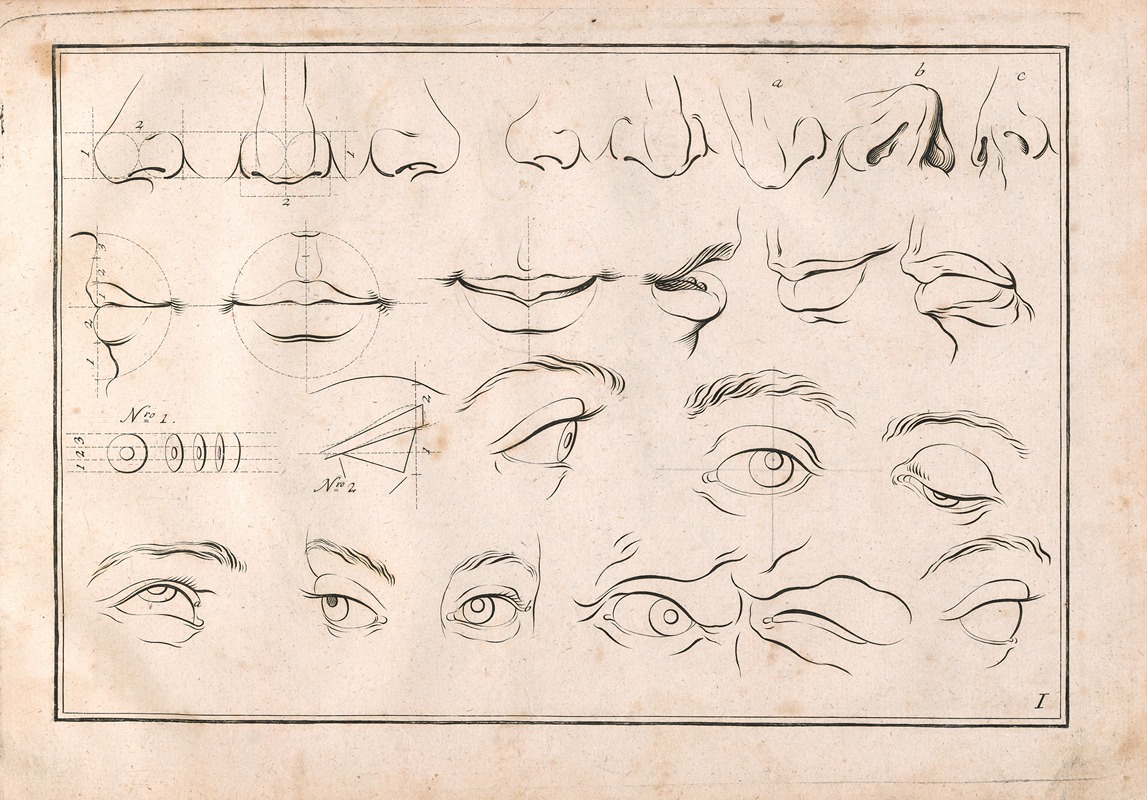 a b c
2
1 1
2
3
2
1
2
1
Nro 1.
2
3
2
1
1
Nro 2
a
I